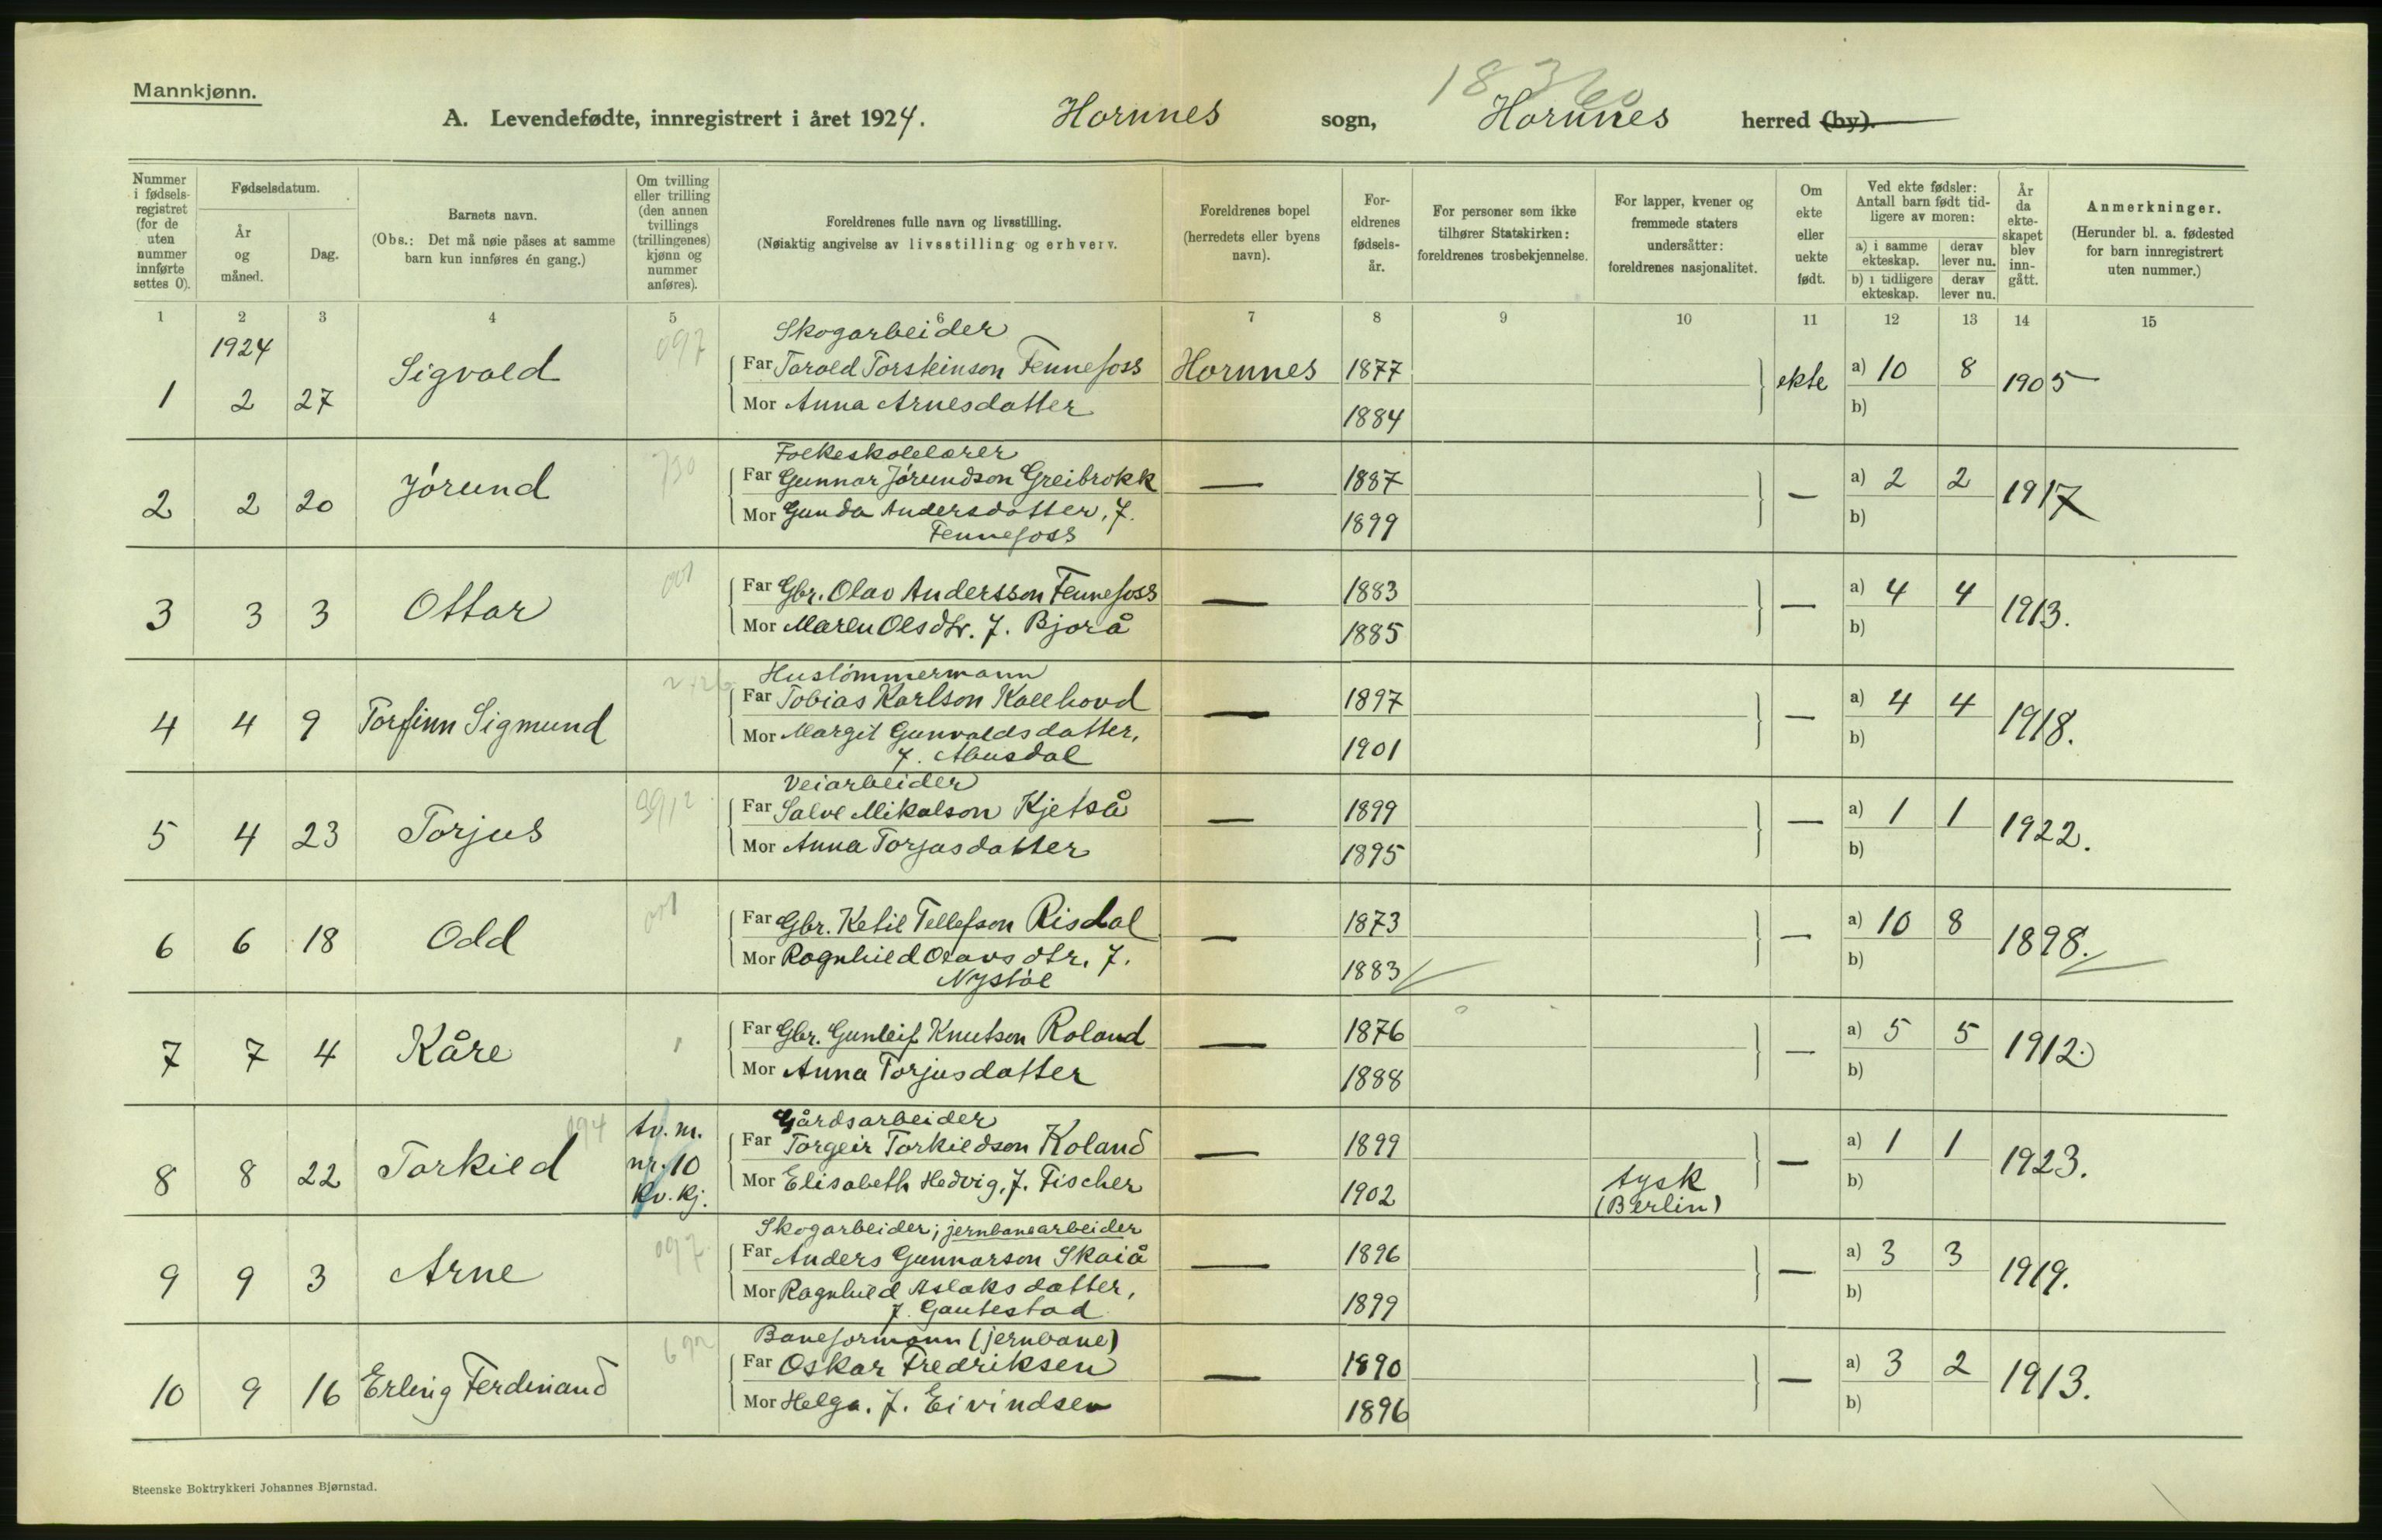 Mannkjønn.
A. Levendefødte, innregistrert i året 1924. Hornnes sogn, Hornnes herred (by).
Nummer i fødselsregistret (for de uten nummer innførte settes 0).
Fødselsdatum.
År og måned.
Dag.
Barnets navn.
(Obs.: Det må nøie påses at samme barn kun innføres én gang.)
Om tvilling eller trilling (den annen tvillings (trillingenes) kjønn og nummer anføres).
Foreldrenes fulle navn og livsstilling.
(Nøiaktig angivelse av livsstilling og erhverv.
Foreldrenes bopel (herredets eller byens navn).
Foreldrenes fødselsår.
For personer som ikke tilhører Statskirken: foreldrenes trosbekjennelse.
For lapper, kvener og fremmede staters undersåtter: foreldrenes nasjonalitet.
Om ekte eller uekte født.
Ved ekte fødsler: Antall barn født tidligere av moren:
a) i samme ekteskap. derav lever nu.
b) i tidligere ekteskap. derav lever nu.
År da ekteskapet blev inngått.
Anmerkninger.
(Herunder bl. a. fødested for barn innregistrert uten nummer.)
1 2 3 4 5 6 7 8 9 10 11 12 13 14 15
1924
Skogarbeider
1 2 27 Sigvald 097 Far Tarald Torsteinson Fennefoss Hornnes 1877 ekte a) 10 8 1905
Mor Anna Arnesdatter 1884 b)
Folkeskolelærer
2 2 20 Jórund 730 Far Gunnar Jórundson Greibrokk — 1887 — a) 2 2 1917
Mor Gunda Andersdatter, f. 1899 b)
Fennefoss
3 3 3 Ottar 001 Far Gbr. Olav Andersson Fennefoss — 1883 — a) 4 4 1913.
Mor Maren Olsdtr. f. Bjorå 1885 b)
Hustómmermann
4 4 9 Torfinn Sigmund Far Tobias Karlson Kallhovd — 1897 — a) 4 4 1918.
Mor Margit Gunvaldsdatter, 1901 b)
f. Abusdal
Veiarbeider
5 4 23 Torjus Far Salve Mikalson Kjetså — 1899 — a) 1 1 1922.
Mor Anna Torjusdatter 1895 b)
6 6 18 Odd 001 Far Gbr. Ketil Tellefson Risdal — 1873 — a) 10 8 1898.
Mor Ragnhild Olavsdtr. f. 1883 b)
Nystól
7 7 4 Kåre Far Gbr. Gunleif Knutson Roland — 1876 — a) 5 5 1912.
Mor Anna Torjusdatter 1888 b)
Gårdsarbeider
8 8 22 Torkild 094 tv. m. nr. 10 Kv. kj. Far Torgeir Torkildson Koland — 1899 — a) 1 1 1923.
Mor Elisabeth Hedvig, f. Fischer 1902 tysk (Berlin) b)
Skogarbeider; jernbanearbeider
9 9 3 Arne 097 Far Anders Gunnarson Skaiå — 1896 — a) 3 3 1919.
Mor Ragnhild Aslaksdatter, 1899 b)
f. Gautestad
Baneformann (jernbane)
10 9 16 Erling Ferdinand Far Oskar Fredriksen — 1890 — a) 3 2 1913.
Mor Helga. f. Eivindsen 1896 b)
Steenske Boktrykkeri Johannes Bjørnstad.